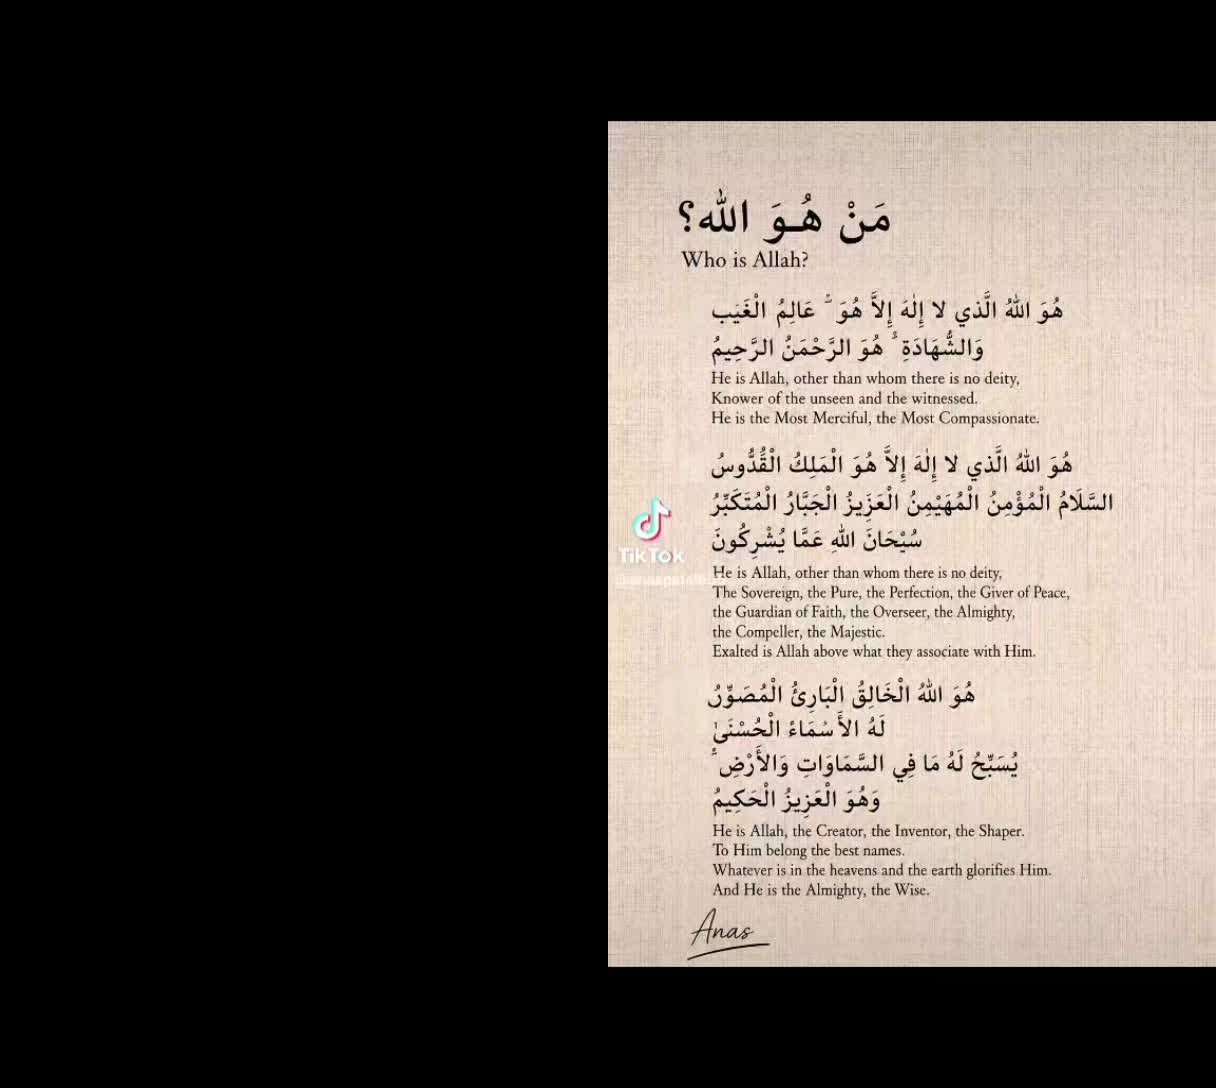 مَنْ هُـوَ الله؟
Who is Allah?
هُوَ اللهُ الَّذي لا إِلٰهَ إِلاَّ هُوَ ۖ عَالِمُ الْغَيَب
وَالشُّهَادَةِ ۖ هُوَ الرَّحْمَنُ الرَّحِيمُ
He is Allah, other than whom there is no deity,
Knower of the unseen and the witnessed.
He is the Most Merciful, the Most Compassionate.
هُوَ اللهُ الَّذي لا إِلٰهَ إِلاَّ هُوَ الْمَلِكُ الْقُدُّوسُ
السَّلَامُ الْمُؤْمِنُ الْمُهَيْمِنُ الْعَزِيزُ الْجَبَّارُ الْمُتَكَبِّرُ
سُبْحَانَ اللهِ عَمَّا يُشْرِكُونَ
TikTok
He is Allah, other than whom there is no deity,
The Sovereign, the Pure, the Perfection, the Giver of Peace,
the Guardian of Faith, the Overseer, the Almighty,
the Compeller, the Majestic.
Exalted is Allah above what they associate with Him.
هُوَ اللهُ الْخَالِقُ الْبَارِئُ الْمُصَوِّرُ
لَهُ الأَسْمَاءُ الْحُسْنَىٰ
يُسَبِّحُ لَهُ مَا فِي السَّمَاوَاتِ وَالأَرْضِ ۖ
وَهُوَ الْعَزِيزُ الْحَكِيمُ
He is Allah, the Creator, the Inventor, the Shaper.
To Him belong the best names.
Whatever is in the heavens and the earth glorifies Him.
And He is the Almighty, the Wise.
Anas